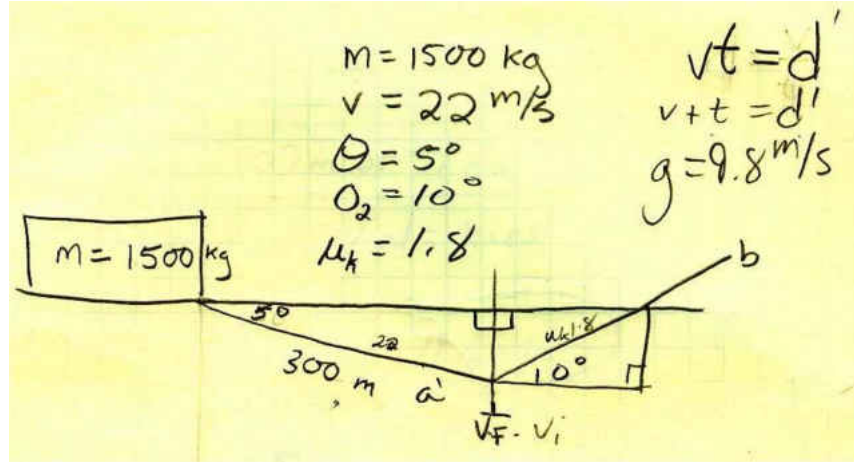 m = 1500 kg
v = 22 m/s
θ = 5°
θ₂ = 10°
μₖ = 1.8
vt = d'
v + t = d'
g = 9.8 m/s
m = 1500 kg
5°
22
300 m
a'
μₖ1.8
10°
b